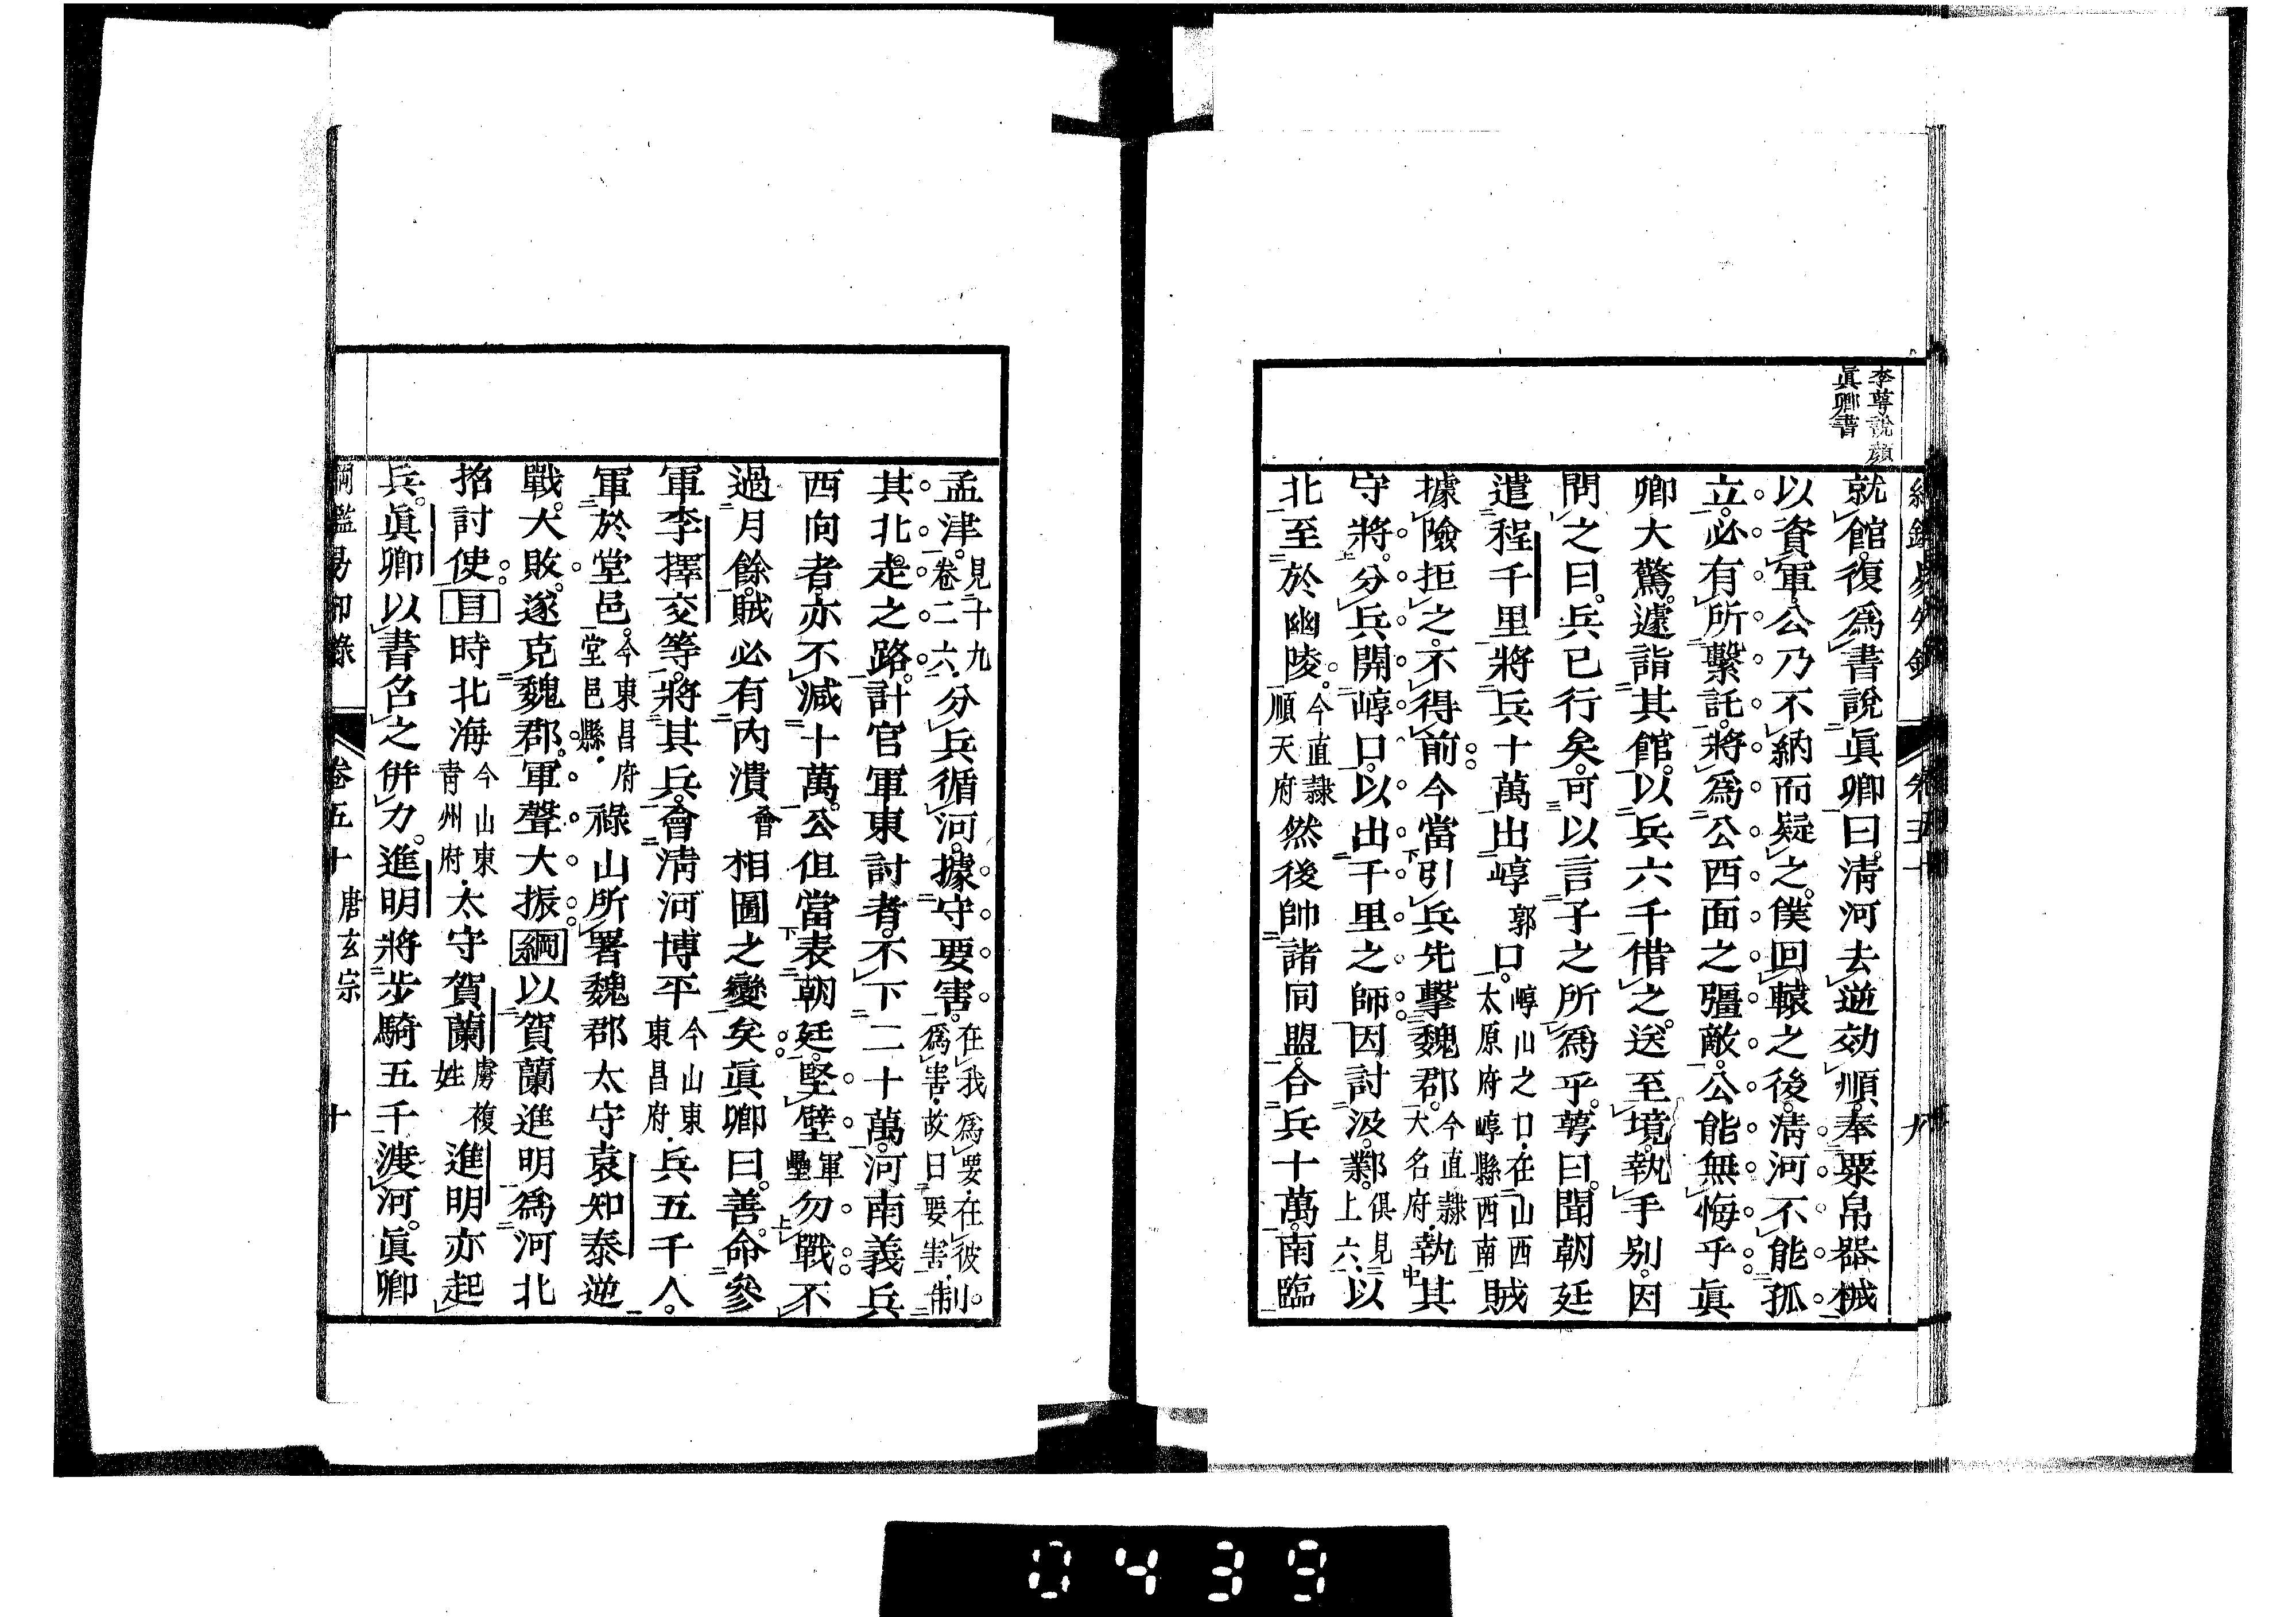 李萼說顏
眞卿書
就館復爲書說眞卿曰淸河去逆効順奉粟帛器械
以資軍公乃不納而疑之僕回轅之後淸河不能孤
立必有所繫託將爲公西面之彊敵公能無悔乎眞
卿大驚遽詣其館以兵六千借之送至境執手别因
問之曰兵已行矣可以言子之所爲乎萼曰聞朝廷
遣程千里將兵十萬出崞郭口崞山之口在山西太原府崞縣西南賊
據險拒之不得前今當引兵先擊魏郡今直隷大名府執其
守將分兵開崞口以出千里之師因討汲鄴俱見上六以
北至於幽陵今直隷順天府然後帥諸同盟合兵十萬南臨
卷五十
九
孟津見十九卷二六分兵循河據守要害在我爲要在彼爲害故曰要害制
其北走之路計官軍東討者不下二十萬河南義兵
西向者亦不減十萬公但當表朝廷堅壁軍壘勿戰不
過月餘賊必有內潰會相圖之變矣眞卿曰善命參
軍李擇交等將其兵會淸河博平今山東東昌府兵五千人
軍於堂邑今東昌府堂邑縣祿山所署魏郡太守袁知泰逆
戰大敗遂克魏郡軍聲大振綱以賀蘭進明爲河北
招討使目時北海今山東靑州府太守賀蘭虜複姓進明亦起
兵眞卿以書召之併力進明將步騎五千渡河眞卿
綱鑑易知錄 卷五十 唐玄宗 十
0439